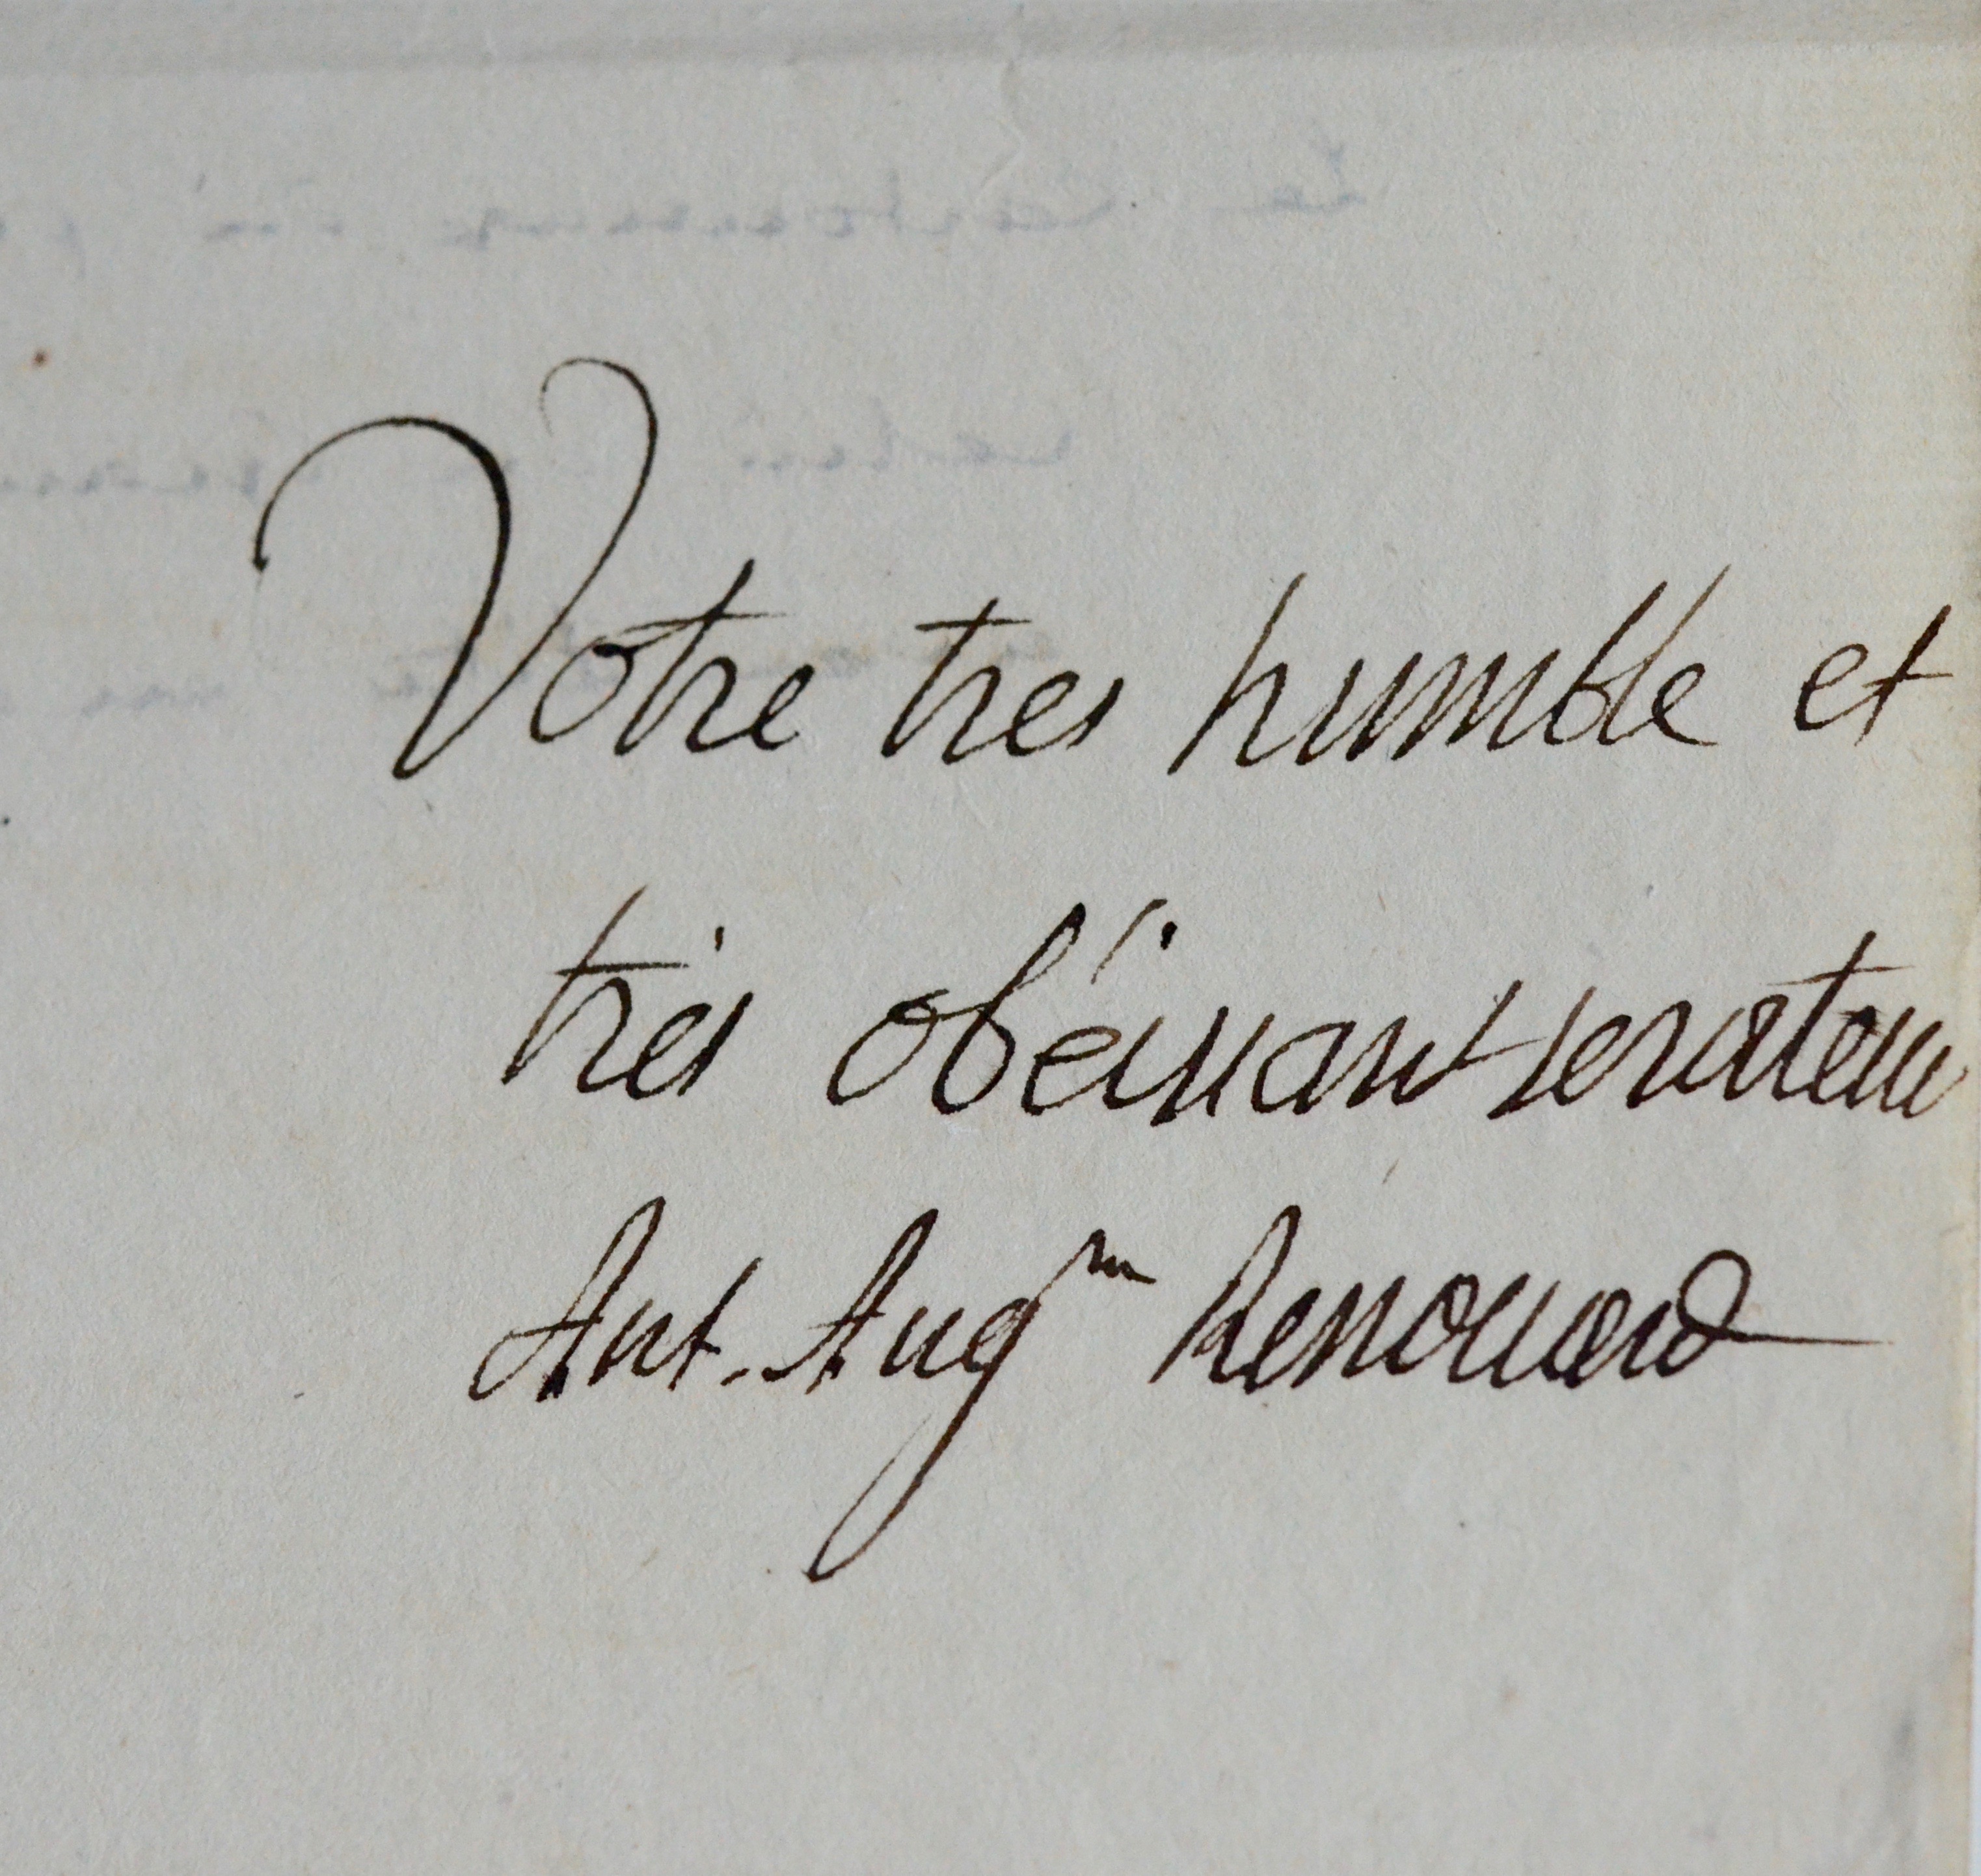 Votre tres humble et
très obéissant serviteur
Ant. Aug^in Renouard